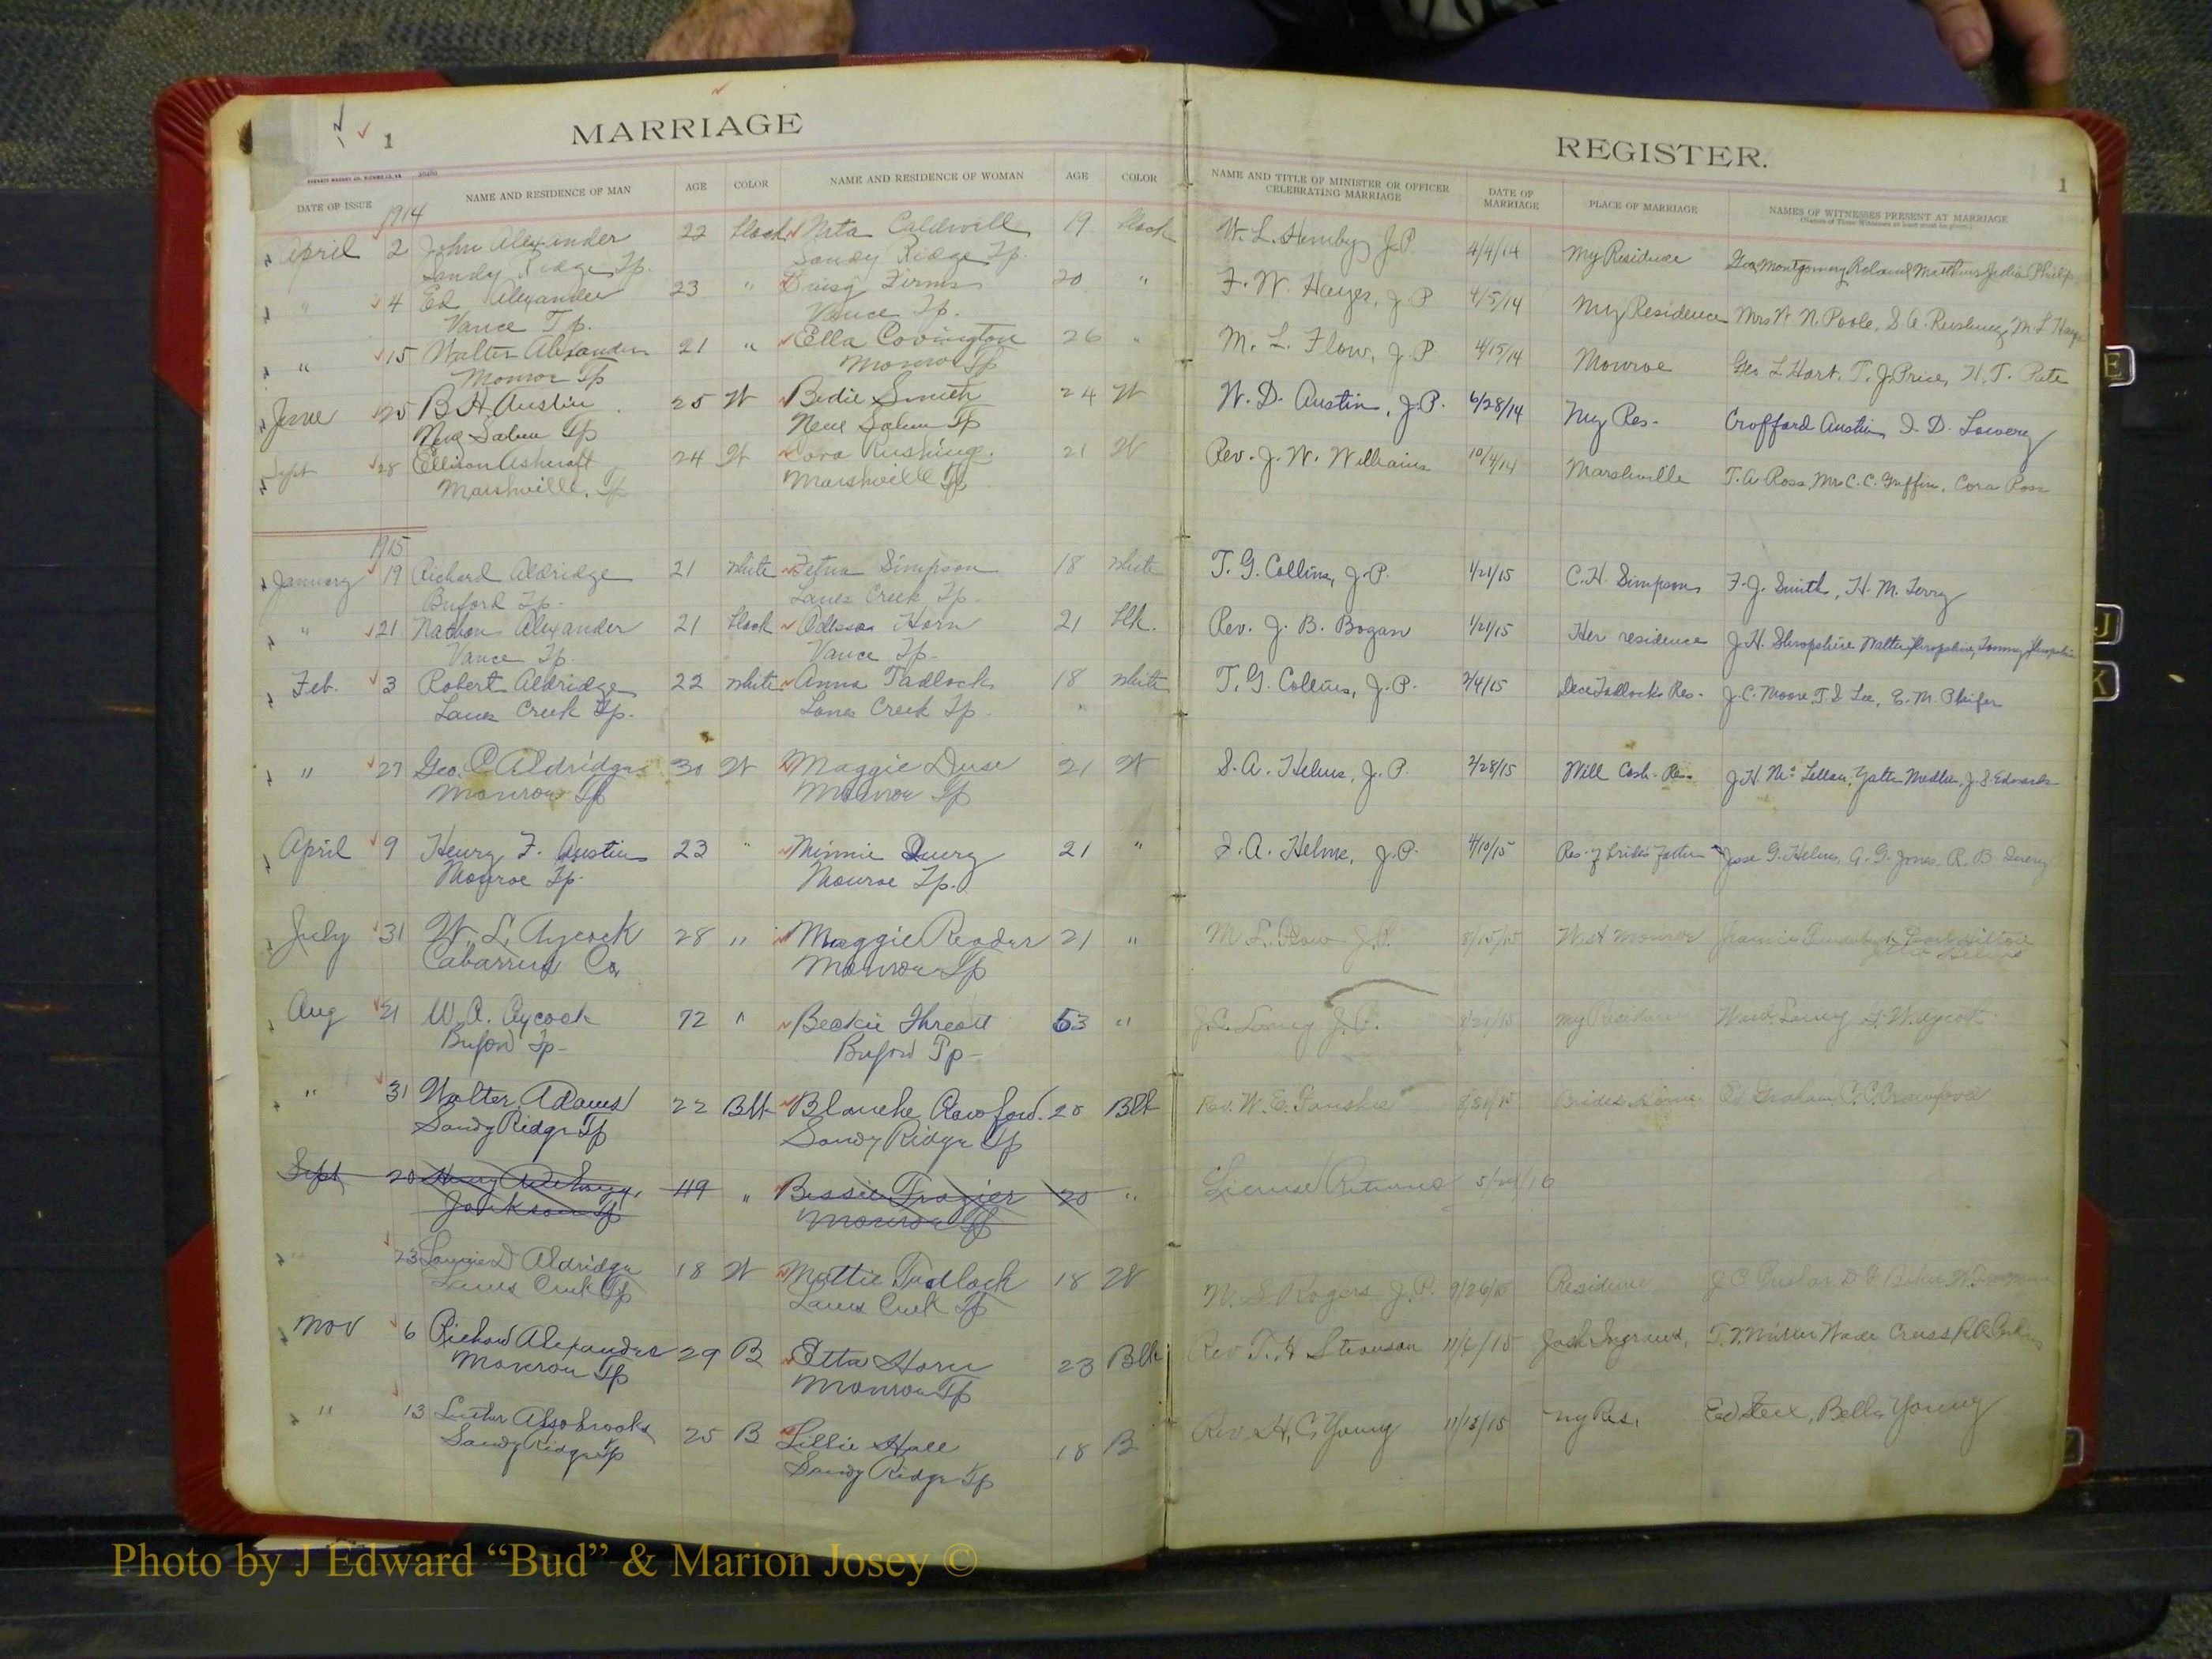 1 MARRIAGE
REGISTER. 1
DATE OF ISSUE NAME AND RESIDENCE OF MAN AGE COLOR NAME AND RESIDENCE OF WOMAN AGE COLOR NAME AND TITLE OF MINISTER OR OFFICER CELEBRATING MARRIAGE DATE OF MARRIAGE PLACE OF MARRIAGE NAMES OF WITNESSES PRESENT AT MARRIAGE
1914
April 2 John Alexander 22 black Caldwell 19 black W. L. Hemby J.P. 4/4/14 My Residence Montgomery
Sandy Ridge Tp. Sandy Ridge Tp.
" 4 Ed Alexander 23 " Daisy 20 " F. W. Hayes, J.P 4/5/14 My Residence Mrs W N. Poole,
Vance Tp. Vance Tp.
" 15 Walter Alexander 21 " Ella Covington 26 " M. L. Flow, J.P 4/15/14 Monroe Geo L Hart, T. J. Price, H. T. Pate
Monroe Tp Monroe Tp
June 25 B. H. Austin 25 W Bedie Smith 24 W W. D. Austin, J.P. 6/28/14 My Res- Crofford Austin, I. D. Lowery
New Salem Tp New Salem Tp
Sept 28 Ellison Ashcraft 24 W Dora Rushing. 21 W Rev. J. W. Williams 10/4/14 Marshville T. A Ross, Mrs C. C. Griffin, Cora Ross
Marshville, Tp Marshville Tp
1915
January 19 Richard Aldridge 21 white Simpson 18 white T. G. Collins, J.P. 1/21/15 C. H. Simpsons F. J. Smith, H. M. Terry
Buford Tp- Lanes Creek Tp-
" 21 Nathan Alexander 21 black Odessa Horn 21 blk. Rev. J. B. Bogan 1/21/15 Her residence J. H. Shropshire Walter Shropshire, Tommy Shropshire
Vance Tp. Vance Tp-
Feb. 3 Robert Aldridge 22 white Anna Tadlock 18 white T. G. Collins, J.P. 2/4/15 Tadlocks Res- J. C. Moore, T. D Lee, E. M. Phifer
Lanes Creek Tp. Lanes Creek Tp-
" 27 Geo. C Aldridge 30 W Maggie Duse 21 W S. A. Helms, J. P. 2/28/15 Will Cash Res- J. H. Edwards
Monroe Tp Monroe Tp
April 9 Henry F. Austin 23 " Minnie Query 21 " S. A. Helms, J.P. 4/10/15 Res. of brides Father Jesse G. Helms, A. G. Jones, R. B Query
Monroe Tp- Monroe Tp.
July 31 W. L. Aycock 28 " Maggie Reader 21 " M L Flow J.P. 8/15/15 West Monroe
Cabarrus Co, Monroe Tp
Aug 21 W. A. Aycock 72 " Beckie Threatt 53 " J.P. My Residence
Buford Tp- Buford Tp-
" 31 Walter Adams 22 Blk Blanche Crawford. 20 Blk Rev. W. E. Brides Home Graham, C. C. Crawford
Sandy Ridge Tp Sandy Ridge Tp
Sept 20 49 " Bessie Frazier 20 " License Returned 5/ /16
Jackson Tp Monroe Tp
23 Aldridge 18 W Mattie Tadlock 18 W M. S Rogers J.P. 9/26/15 Residence
Lanes Creek Tp Lanes Creek Tp
Nov 6 Richard Alexander 29 B Etta Horn 23 Blk Rev T. H Stevenson 11/6/15 Josh Ingrams,
Monroe Tp Monroe Tp
" 13 Luther Alsobrooks 25 B Lillie Hall 18 B Rev. H. C. Young 11/13/15 my Res. Bella Young
Sandy Ridge Tp Sandy Ridge Tp
E
J
K
Photo by J Edward “Bud” & Marion Josey ©